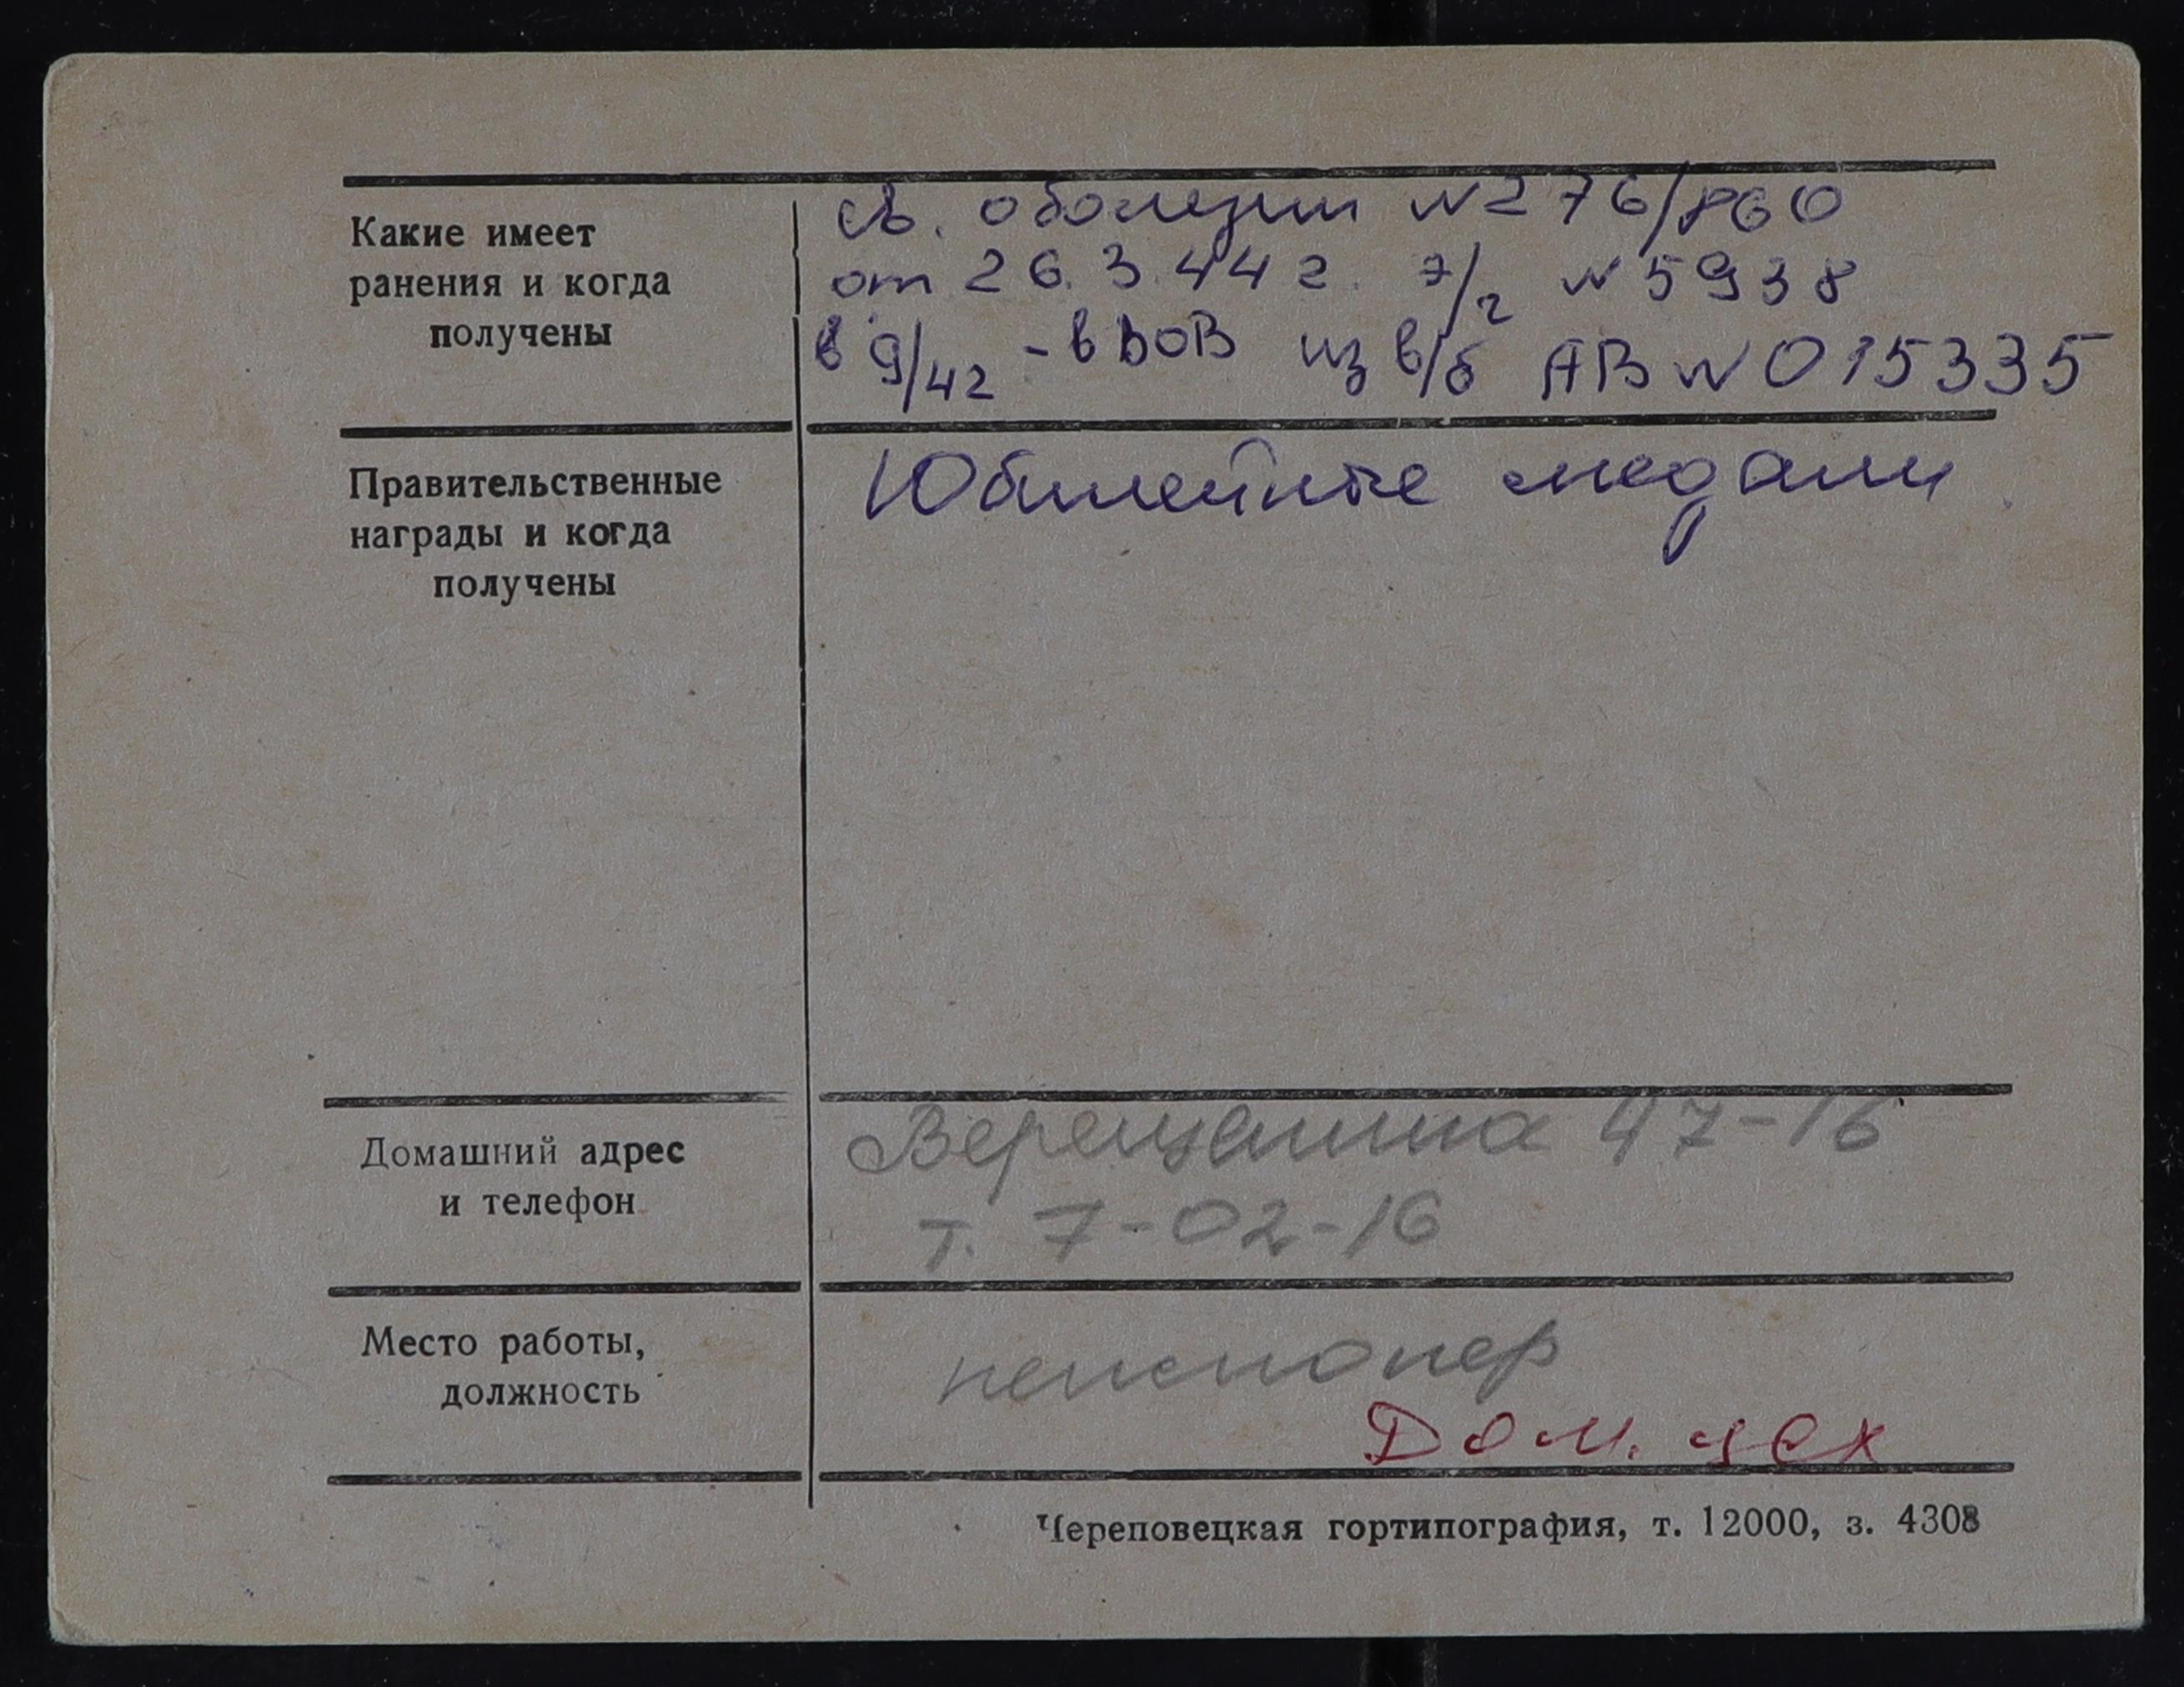 Какие имеет
ранения и когда
получены
св. о болезни N276/860
от 26.3.44г. э/г N5938
в 9/42 - в ВОВ из в/б АВ N015335
Правительственные
награды и когда
получены
Юбилейные медали
Домашний адрес
и телефон
Верещагина 47-16
т. 7-02-16
Место работы,
должность
пенсионер
Дом. цех
Череповецкая гортипография, т. 12000, з. 4308